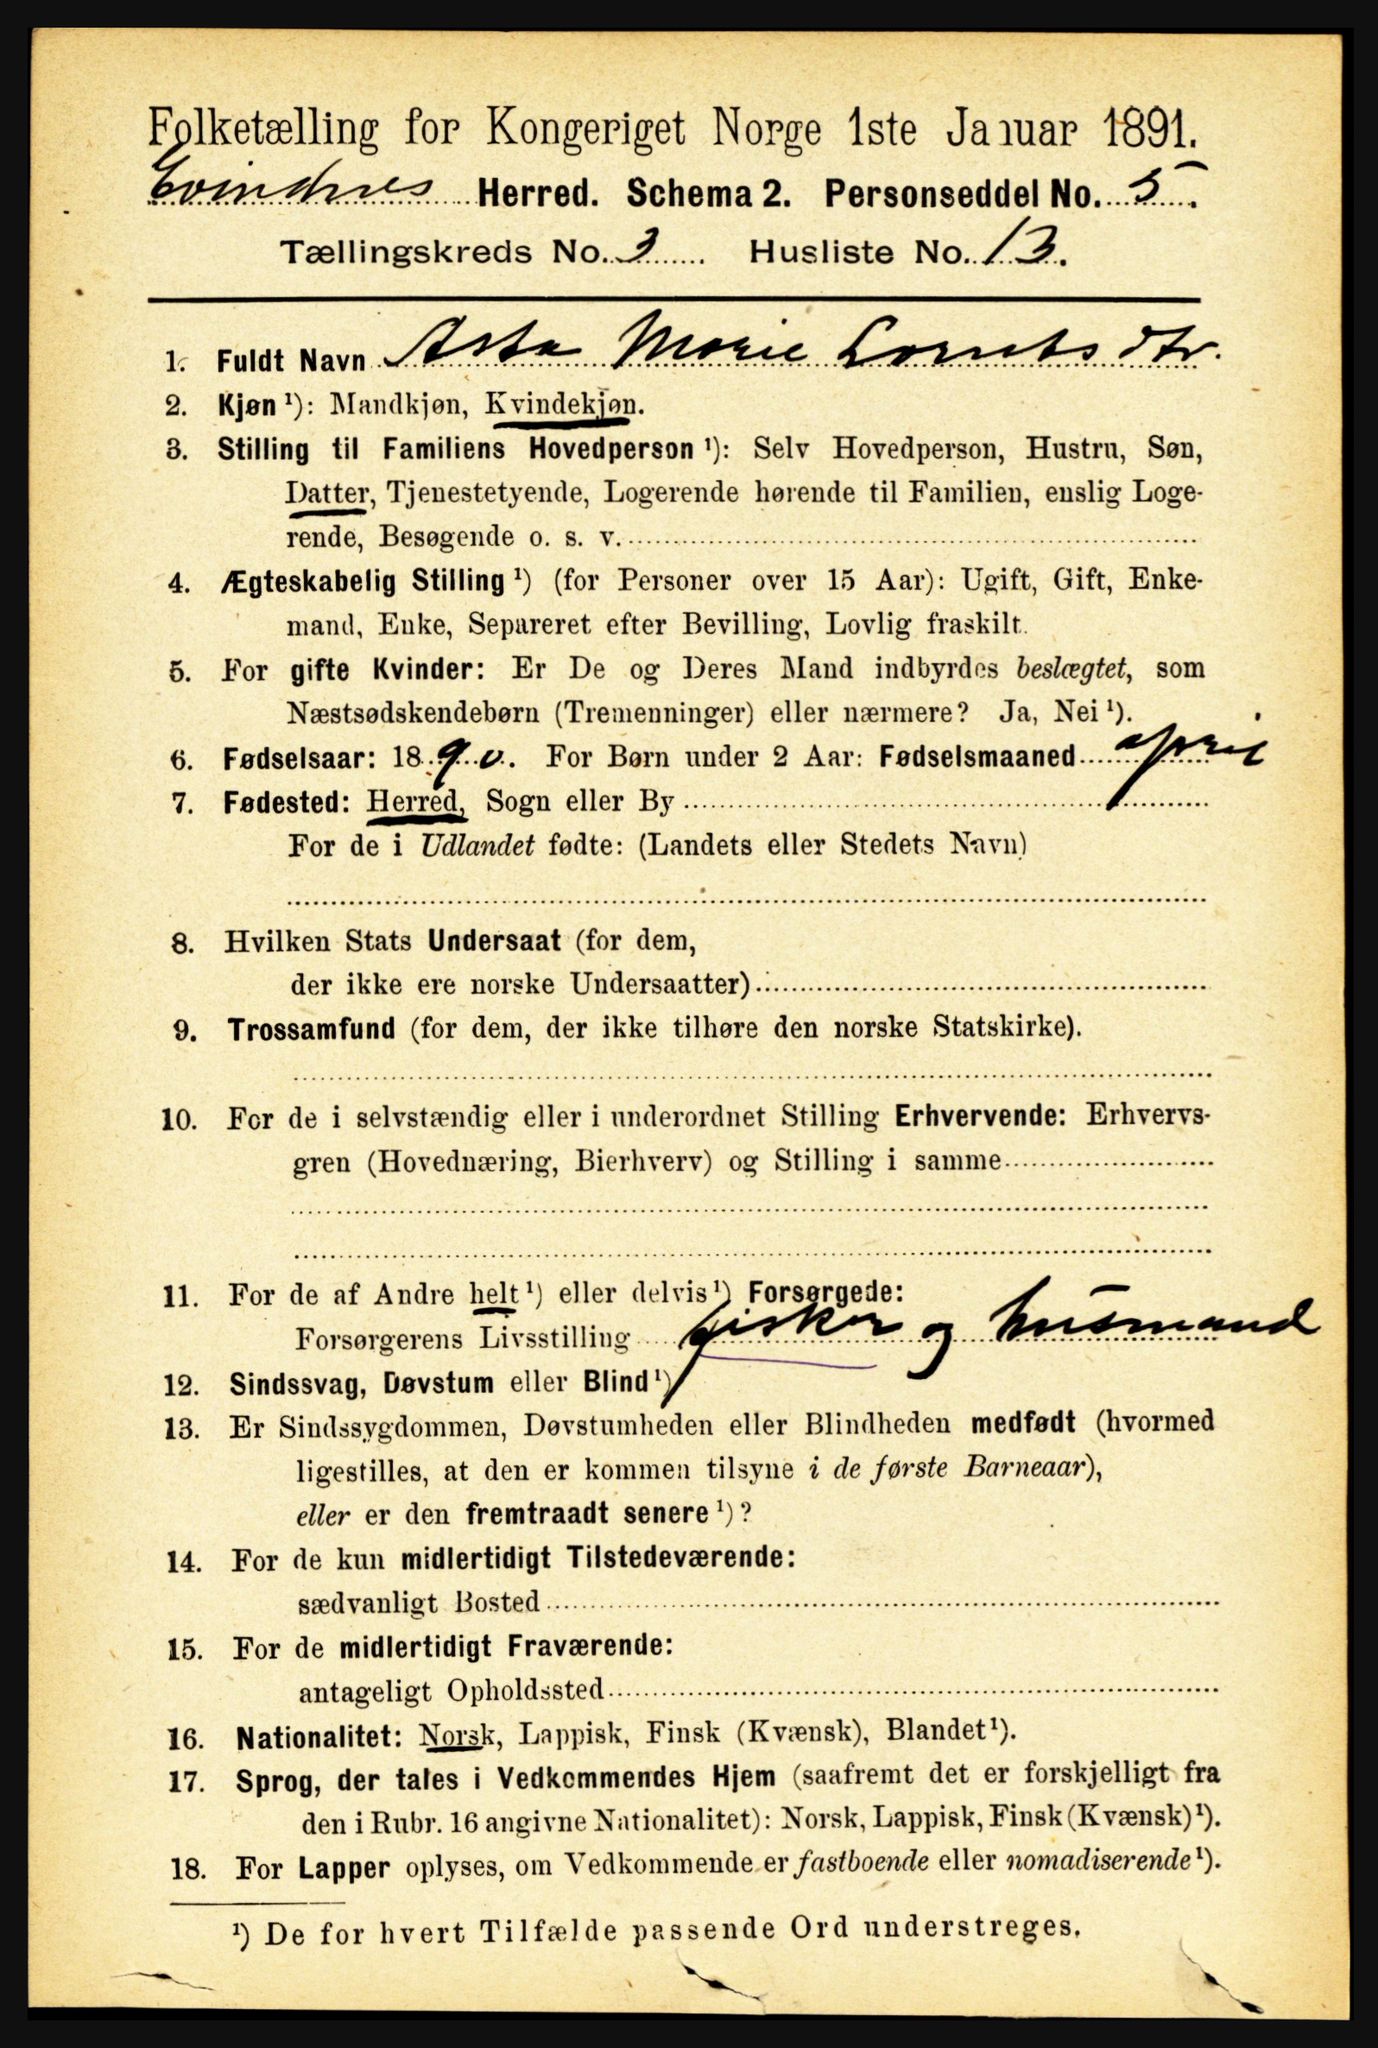 Folketælling for Kongeriget Norge 1ste Januar 1891.
Evindnes Herred. Schema 2. Personseddel No. 5.
Tællingskreds No. 3 Husliste No. 13.
1. Fuldt Navn Asta Marie Lorntsdtr.
2. Kjøn ¹): Mandkjøn, Kvindekjøn.
3. Stilling til Familiens Hovedperson ¹): Selv Hovedperson, Hustru, Søn,
Datter, Tjenestetyende, Logerende hørende til Familien, enslig Loge-
rende, Besøgende o. s. v.
4. Ægteskabelig Stilling ¹) (for Personer over 15 Aar): Ugift, Gift, Enke-
mand, Enke, Separeret efter Bevilling, Lovlig fraskilt.
5. For gifte Kvinder: Er De og Deres Mand indbyrdes beslægtet, som
Næstsødskendebørn (Tremenninger) eller nærmere? Ja, Nei ¹).
6. Fødselsaar: 1890. For Børn under 2 Aar: Fødselsmaaned april
7. Fødested: Herred, Sogn eller By
For de i Udlandet fødte: (Landets eller Stedets Navn)
8. Hvilken Stats Undersaat (for dem,
der ikke ere norske Undersaatter)
9. Trossamfund (for dem, der ikke tilhøre den norske Statskirke).
10. For de i selvstændig eller i underordnet Stilling Erhvervende: Erhvervs-
gren (Hovednæring, Bierhverv) og Stilling i samme
11. For de af Andre helt ¹) eller delvis ¹) Forsørgede:
Forsørgerens Livsstilling fisker og husmand
12. Sindssvag, Døvstum eller Blind ¹)
13. Er Sindssygdommen, Døvstumheden eller Blindheden medfødt (hvormed
ligestilles, at den er kommen tilsyne i de første Barneaar),
eller er den fremtraadt senere ¹)?
14. For de kun midlertidigt Tilstedeværende:
sædvanligt Bosted
15. For de midlertidigt Fraværende:
antageligt Opholdssted
16. Nationalitet: Norsk, Lappisk, Finsk (Kvænsk), Blandet ¹).
17. Sprog, der tales i Vedkommendes Hjem (saafremt det er forskjelligt fra
den i Rubr. 16 angivne Nationalitet): Norsk, Lappisk, Finsk (Kvænsk) ¹).
18. For Lapper oplyses, om Vedkommende er fastboende eller nomadiserende ¹).
¹) De for hvert Tilfælde passende Ord understreges.